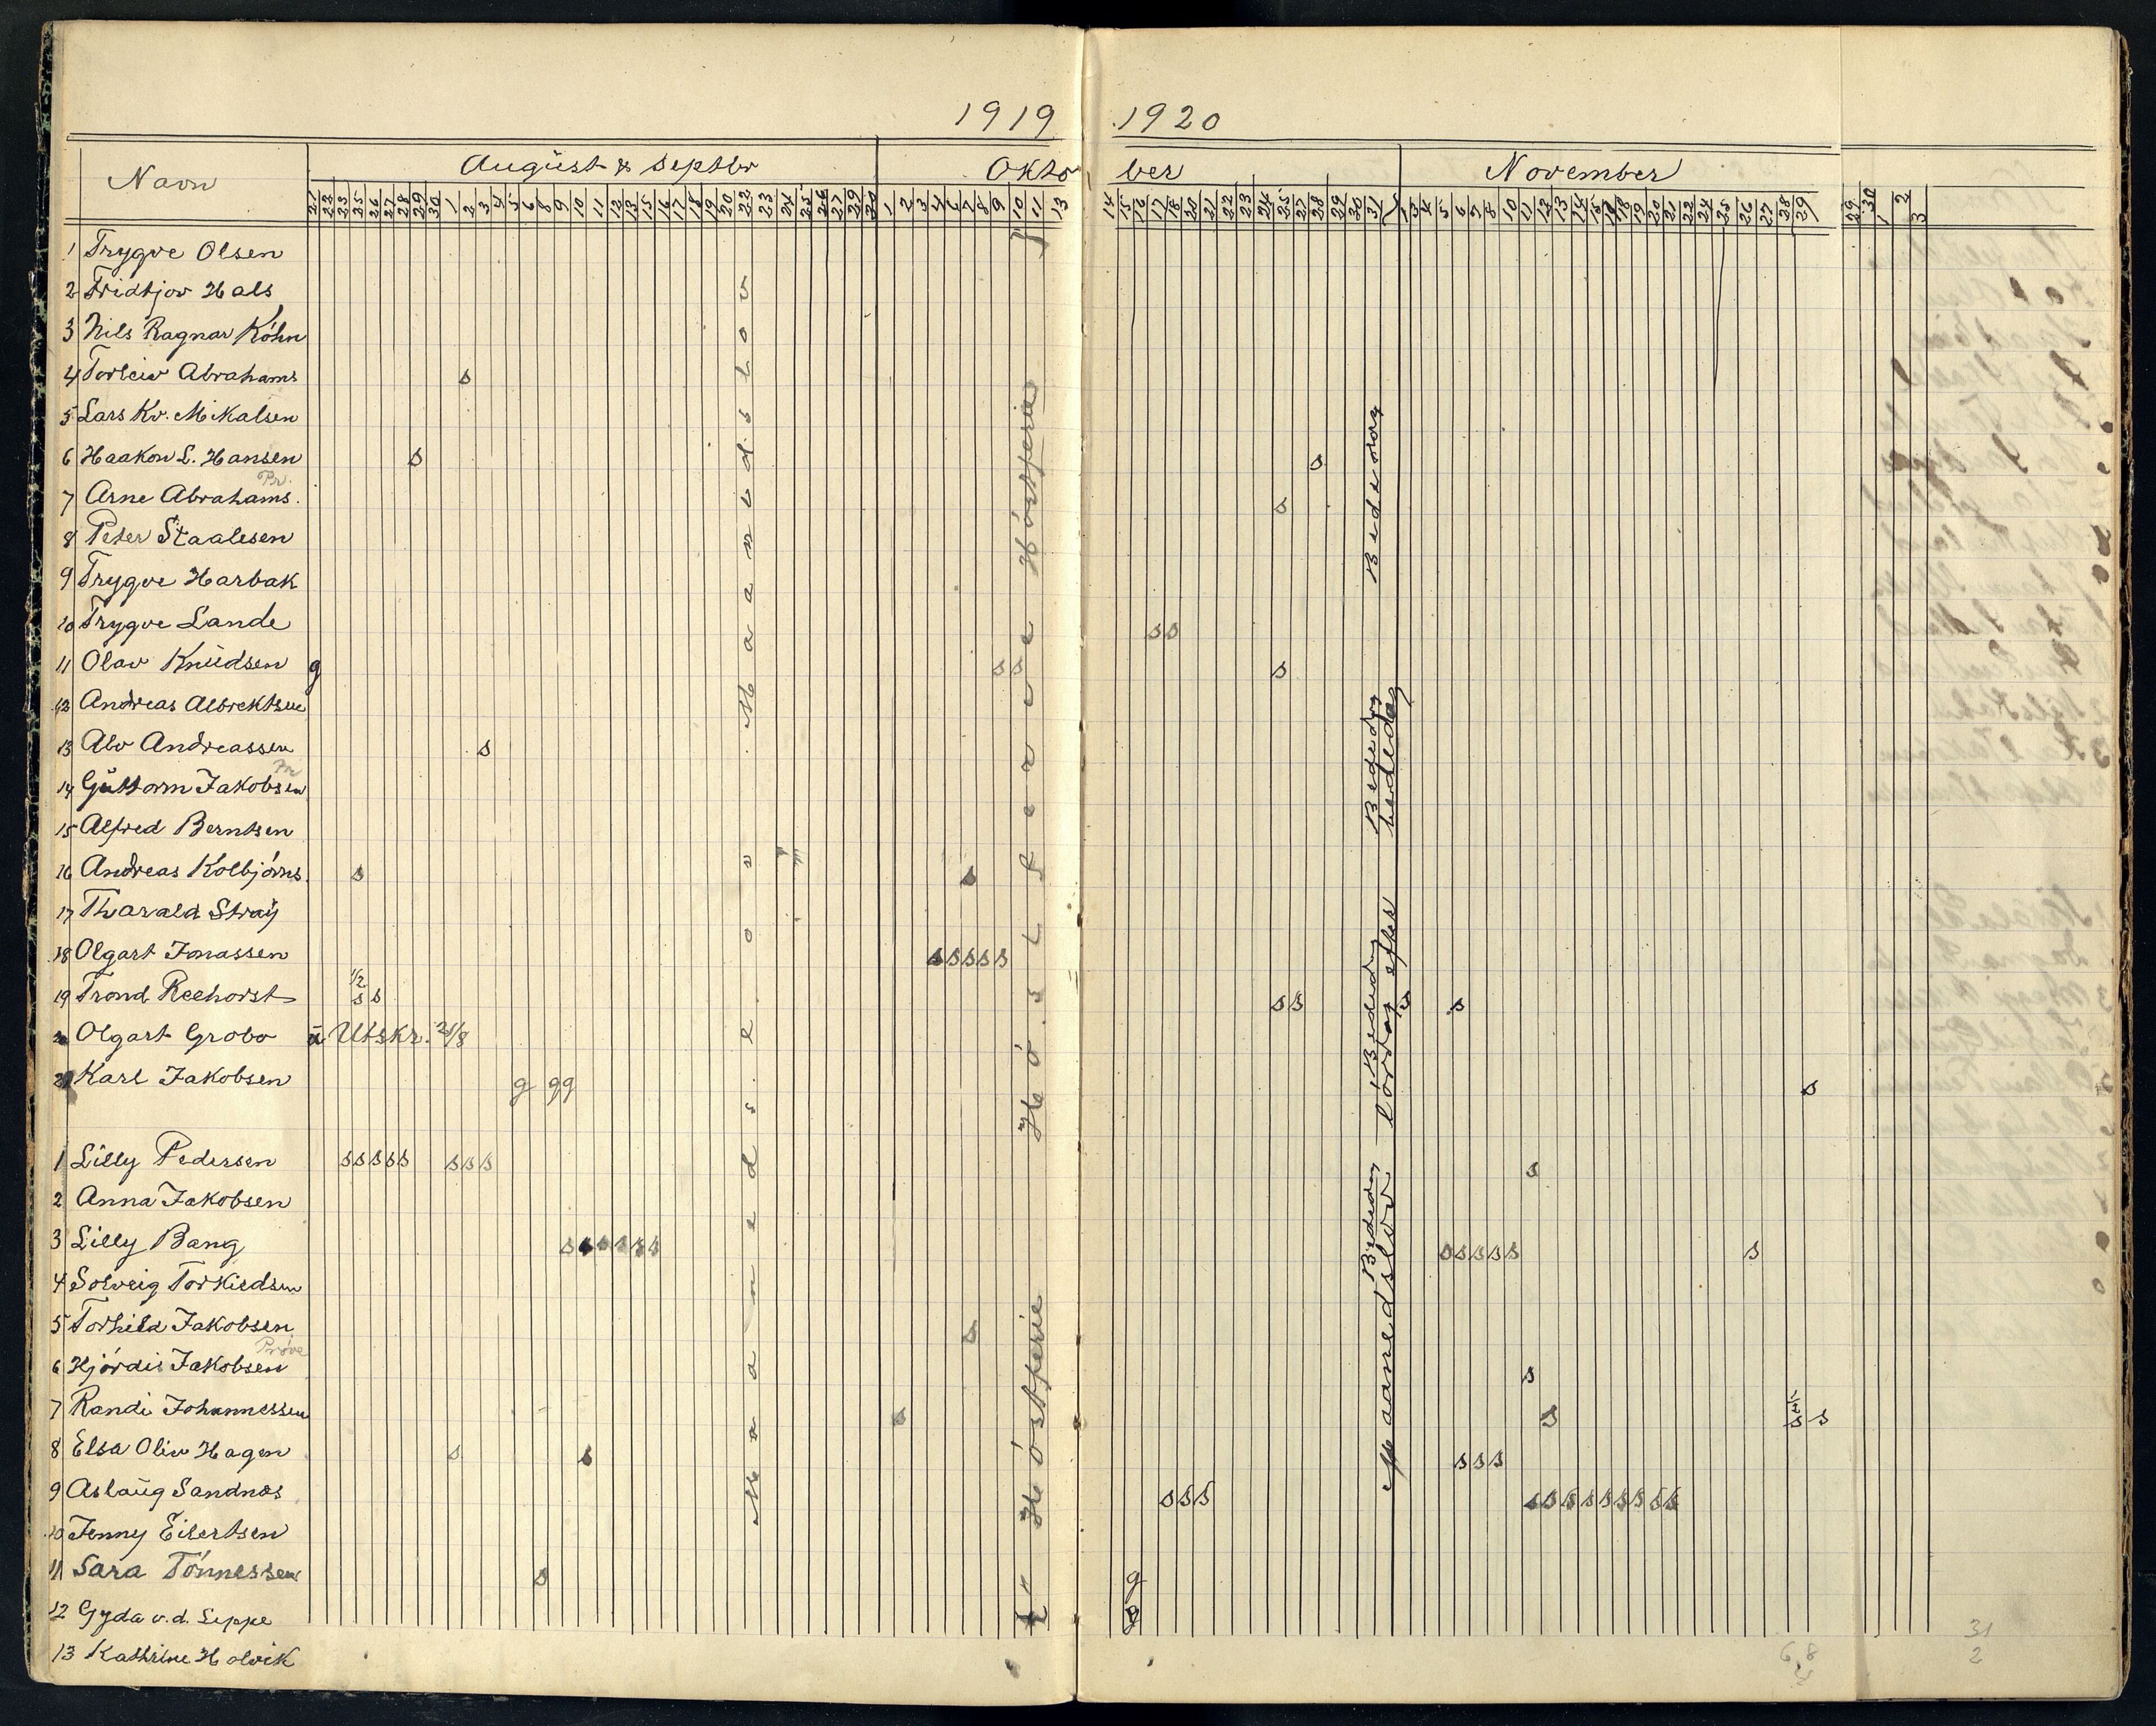 1919 1920
Navn August & Septbr Okto ber November
21 22 23 25 26 27 28 29 30 1 2 3 4 5 6 8 9 10 11 12 13 15 16 17 18 19 20 22 23 24 25 26 27 29 30 1 2 3 4 6 7 8 9 10 11 13 14 15 16 17 18 20 21 22 23 24 25 27 28 29 30 31 3 4 5 6 7 8 10 11 12 13 14 15 17 18 19 20 21 22 24 25 26 27 28 29 29 30 1 2 3
1 Trygve Olsen
2 Fridtjov Hals
3 Nils Ragnar Köhn
4 Torleiv Abrahams s
5 Lars Kr. Mikalsen
6 Haakon L. Hansen s s
Pr.
7 Arne Abrahams. s
8 Peter Staalesen
9 Trygve Harbak
10 Trygve Lande s s
11 Olav Knudsen g s s s
12 Andreas Albrektsen
13 Alv Andreassen s
Pr
14 Guttorm Jakobsen
15 Alfred Berntsen
16 Andreas Kolbjörns. s s
17 Tharald Stray
18 Olgart Jonassen s s s s s
1/2
19 Trond Reehorst s s s s s s
20 Olgart Grobo u Utskr. 21/8
21 Karl Jakobsen g g g s
1 Lilly Pedersen s s s s s s s s s
2 Anna Jakobsen
3 Lilly Bang s s s s s s s s s s s s
4 Solveig Torkildsen
5 Torhild Jakobsen s
Pröve
6 Hjördis Jakobsen s
7 Randi Johannessen s s s
8 Elsa Oliv Hagen s s s s s
9 Aslaug Sandnæs s s s s s s s s s s s s
10 Jenny Eilertsen
11 Sara Tönnessen s g
12 Gyda v.d. Lippe g
13 Kathrine Holvik
Maanedslov
Maanedslov
Höstferie
Höstferie
Höstferie
Bededag
Bededag
Bededag
Bededag
Maanedslov lördag efter bededag
6 8
31
2